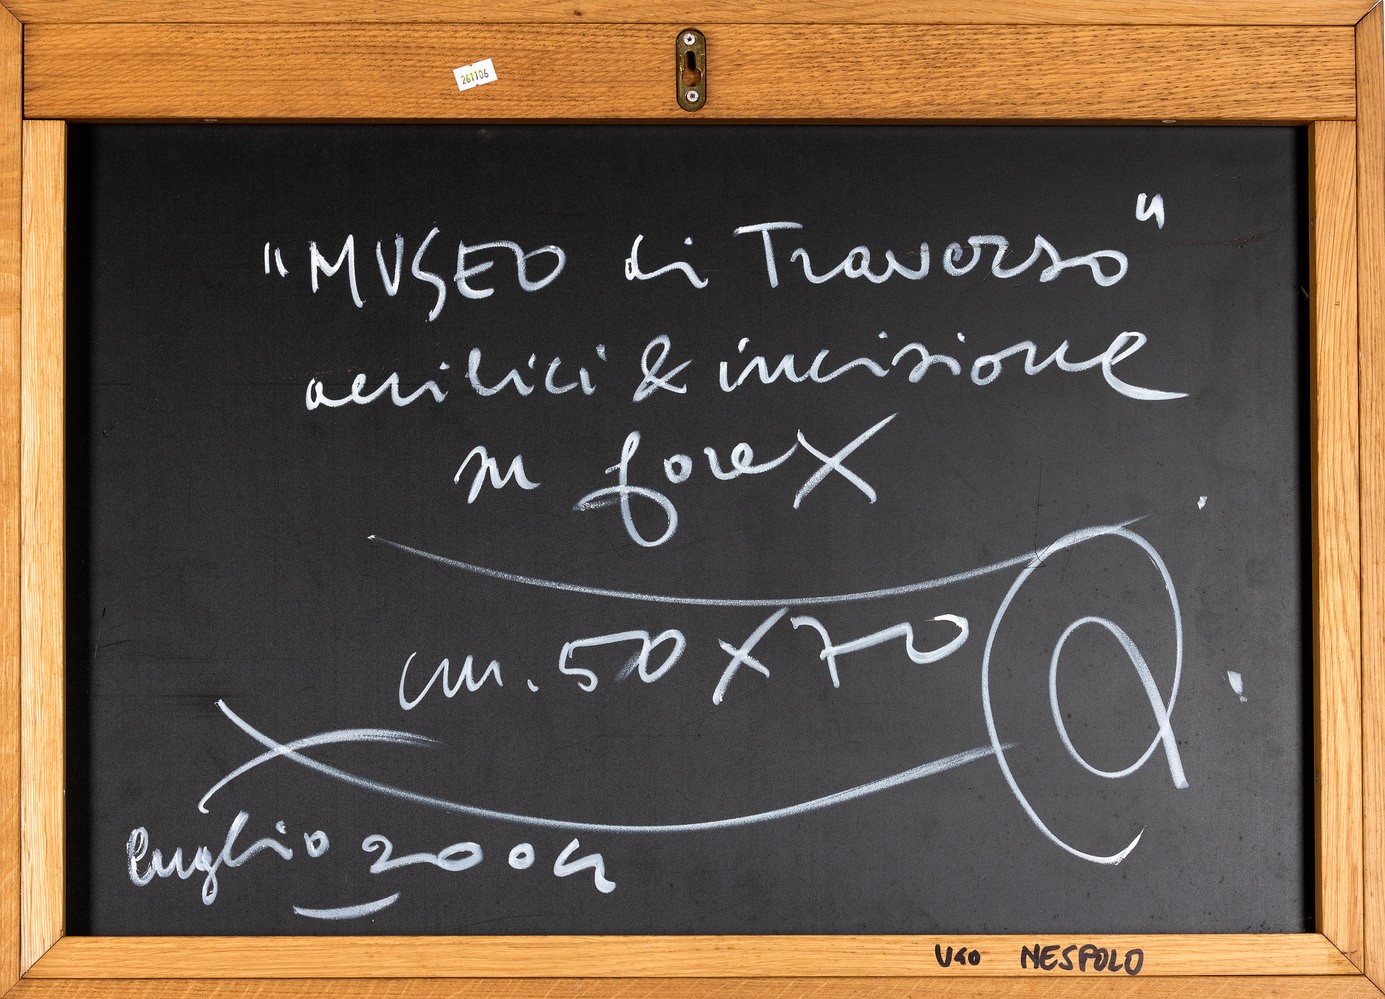 261106
"MUSEO di Traverso"
acrilici & incisione
su forex
cm. 50 X 70
luglio 2004
UGO NESPOLO